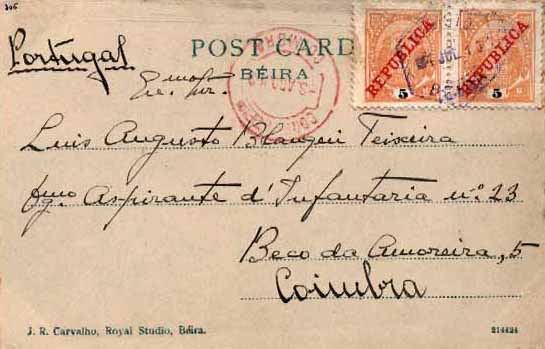 306
Portugal
POST CARD
BEIRA
REPUBLICA
5
REPUBLICA
5
Exmo Sr.
Luis Augusto Teixeira
Aspirante d'Infantaria nº 23
Beco da Amoreira, 5
Coimbra
J. R. Carvalho, Royal Studio, Beira.
214424